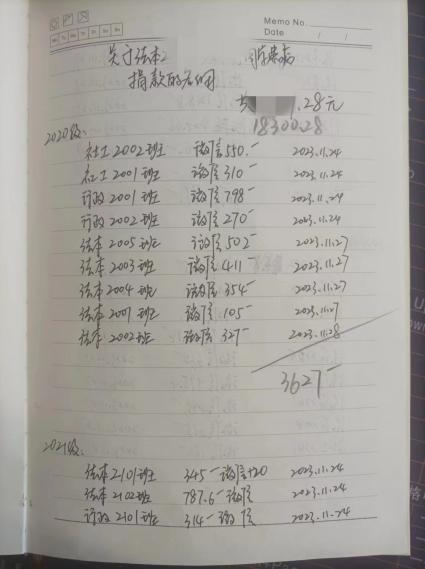 Memo No.
Mo Tu We Th Fr Sa Su
Date / /
关于法本2
捐款的名细
共 .28元
18300.28
2020级、
社工2002班 微信550.- 2023.11.24
社工2001班 微信310- 2023.11.24
行政2001班 微信798- 2023.11.24
行政2002班 微信270- 2023.11.24
法本2005班 微信502- 2023.11.27
法本2003班 微信411- 2023.11.27
法本2004班 微信354- 2023.11.27
法本2001班 微信105- 2023.11.27
法本2002班 微信327- 2023.11.28
3627-
2021级、
法本2101班 345-微信+20 2023.11.24
法本2102班 787.6-微信 2023.11.24
行政2101班 314-微信 2023.11.24